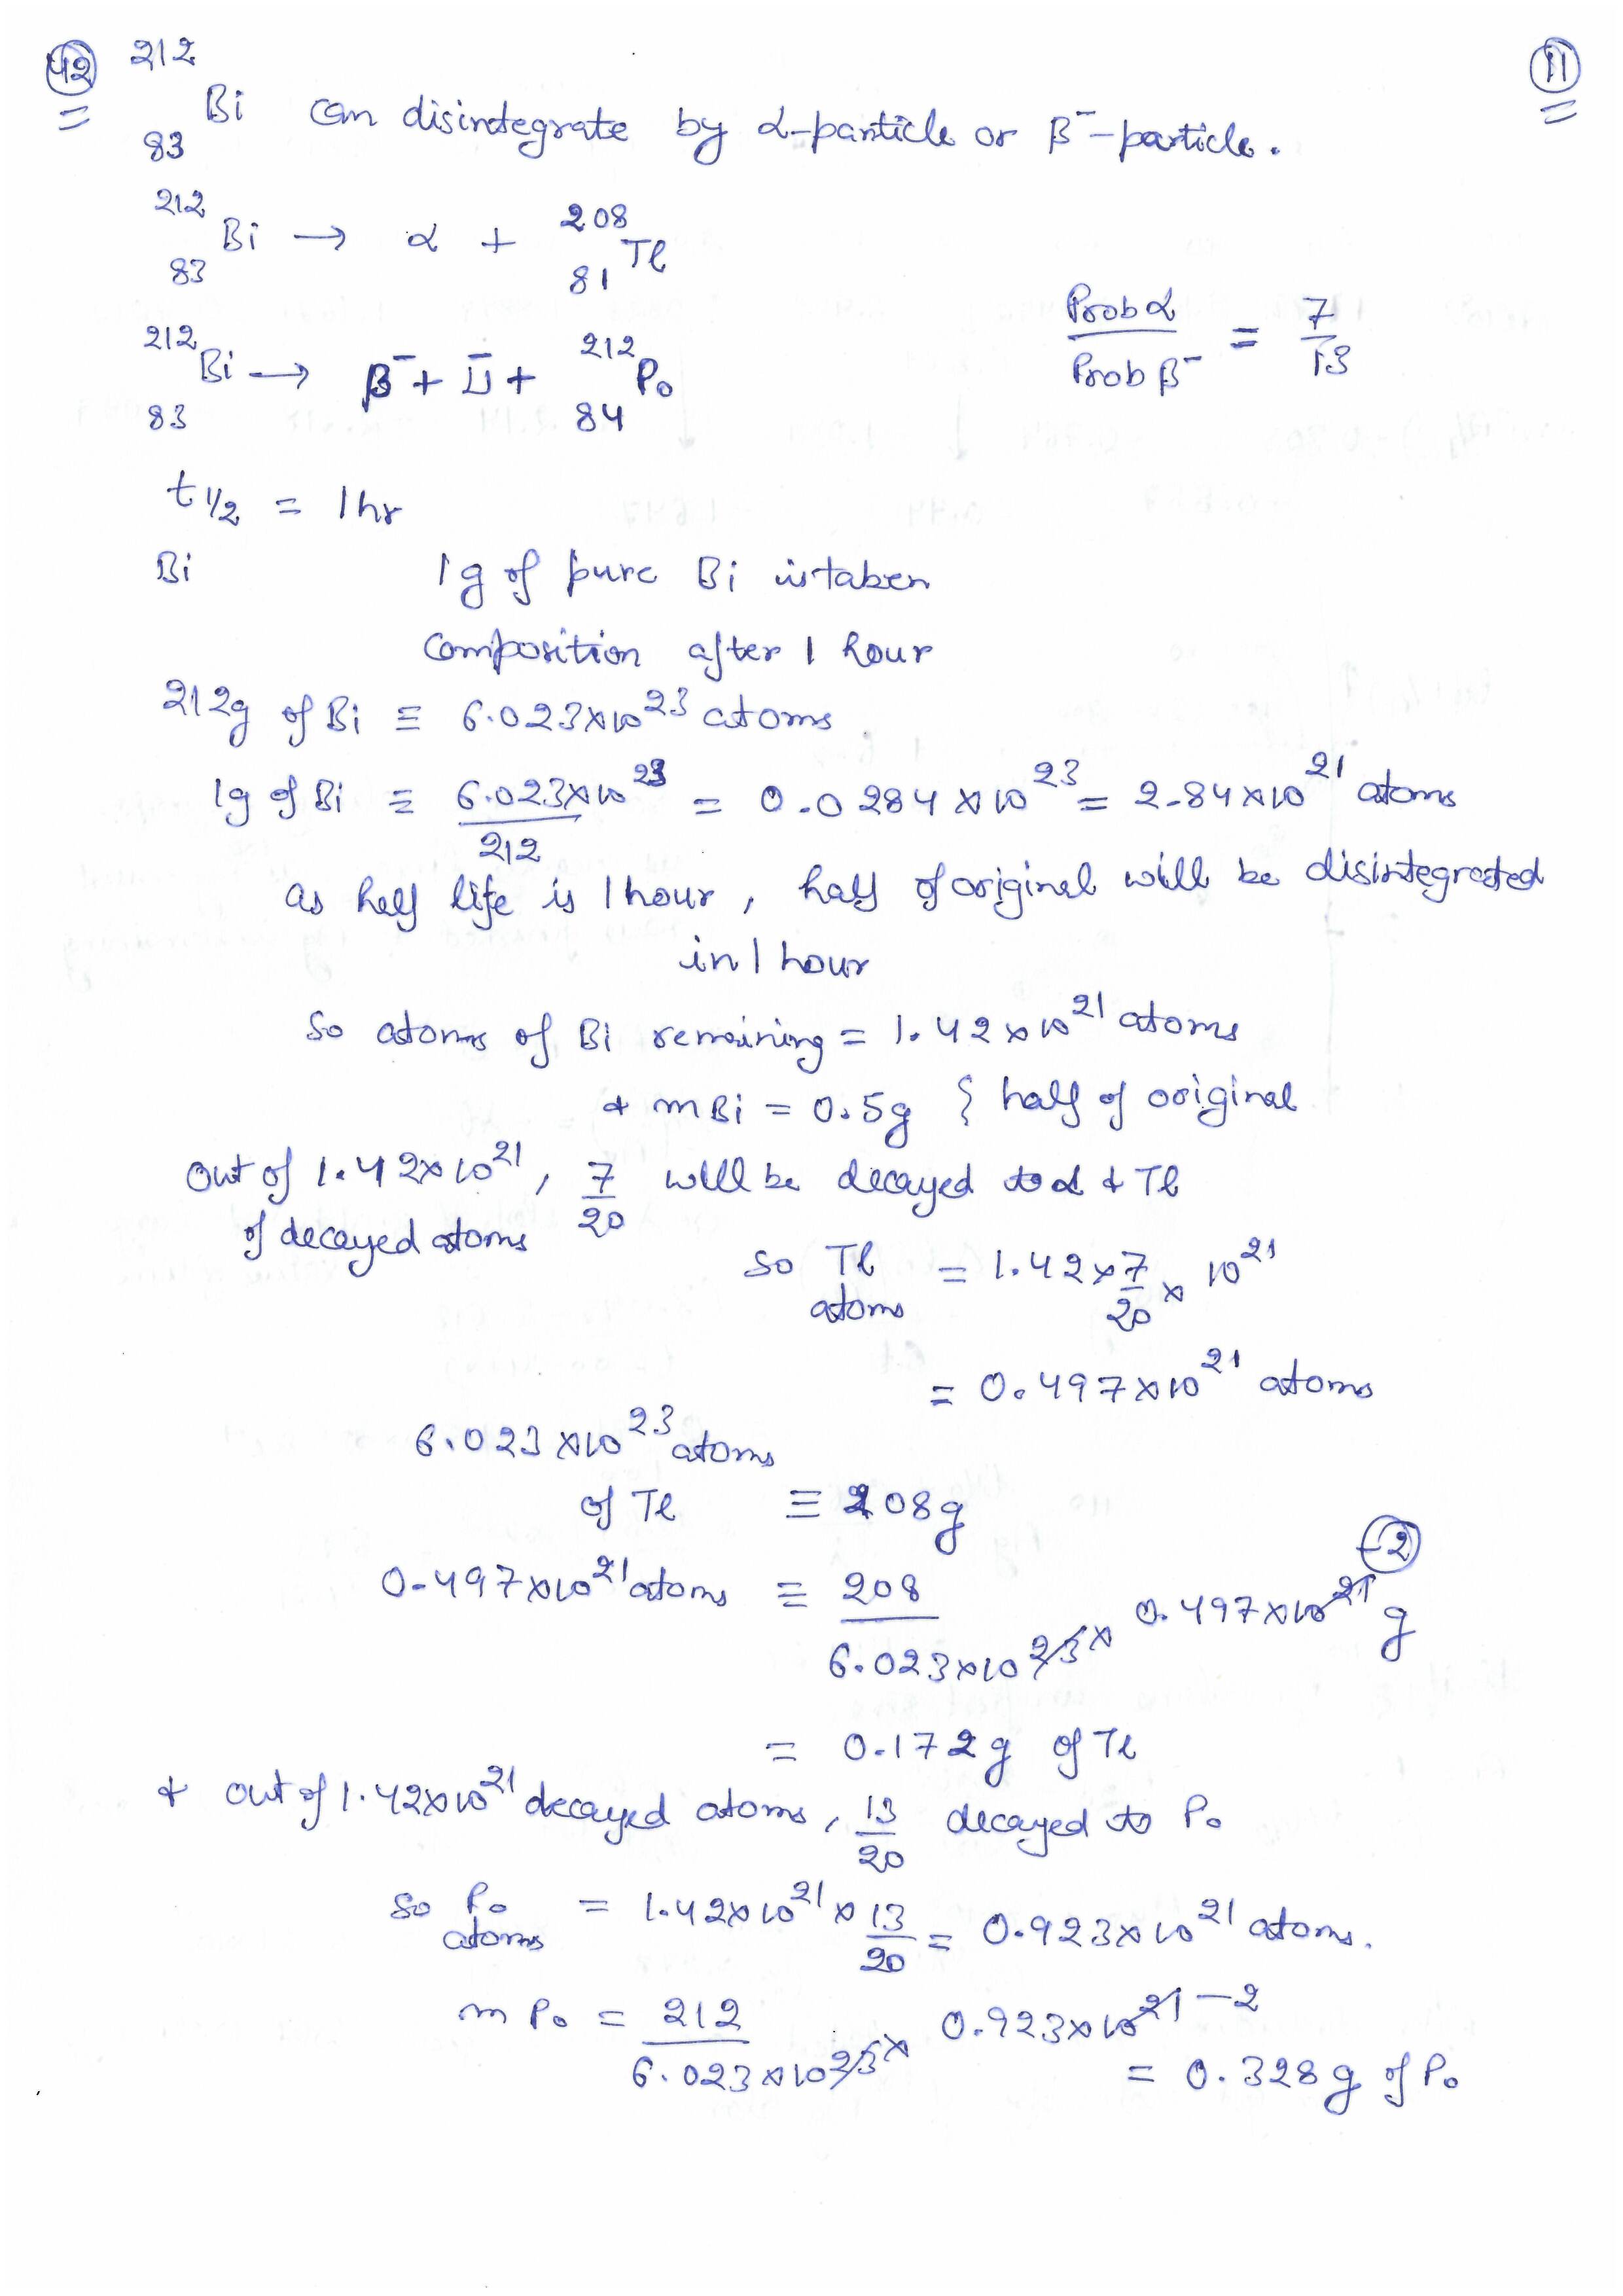 42 ²¹²₈₃Bi can disintegrate by α-particle or β⁻-particle. 11
²¹²₈₃Bi → α + ²⁰⁸₈₁Tl
Prob α / Prob β⁻ = 7/13
²¹²₈₃Bi → β⁻ + ῡ + ²¹²₈₄Po
t 1/2 = 1hr
Bi 1g of pure Bi is taken
Composition after 1 hour
212g of Bi ≡ 6.023×10²³ atoms
1g of Bi ≡ 6.023×10²³/212 = 0.0284×10²³ = 2.84×10²¹ atoms
as half life is 1hour, half of original will be disintegrated
in 1 hour
So atoms of Bi remaining = 1.42×10²¹ atoms
& mBi = 0.5g { half of original
Out of 1.42×10²¹, 7/20 will be decayed to α & Tl
of decayed atoms
So Tl atoms = 1.42×7/20 × 10²¹
= 0.497×10²¹ atoms
6.023×10²³ atoms
of Tl ≡ 208g
0.497×10²¹ atoms ≡ 208/6.023×10²³ × 0.497×10²¹ ⁻² g
= 0.172g of Tl
& out of 1.42×10²¹ decayed atoms, 13/20 decayed to Po
So Po atoms = 1.42×10²¹ × 13/20 = 0.923×10²¹ atoms.
m Po = 212/6.023×10²³ × 0.923×10²¹ ⁻²
= 0.328g of Po